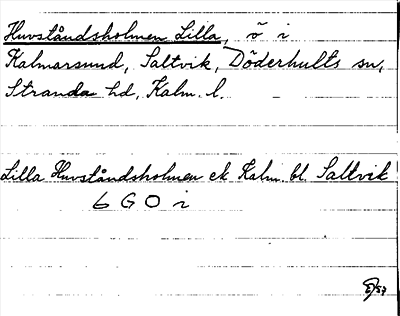 Huvståndsholmen Lilla, ö i
Kalmarsund, Saltvik, Döderhults sn,
Stranda hd, Kalm. l.
Lilla Huvståndsholmen ek Kalm. bl. Saltvik
6 G O i